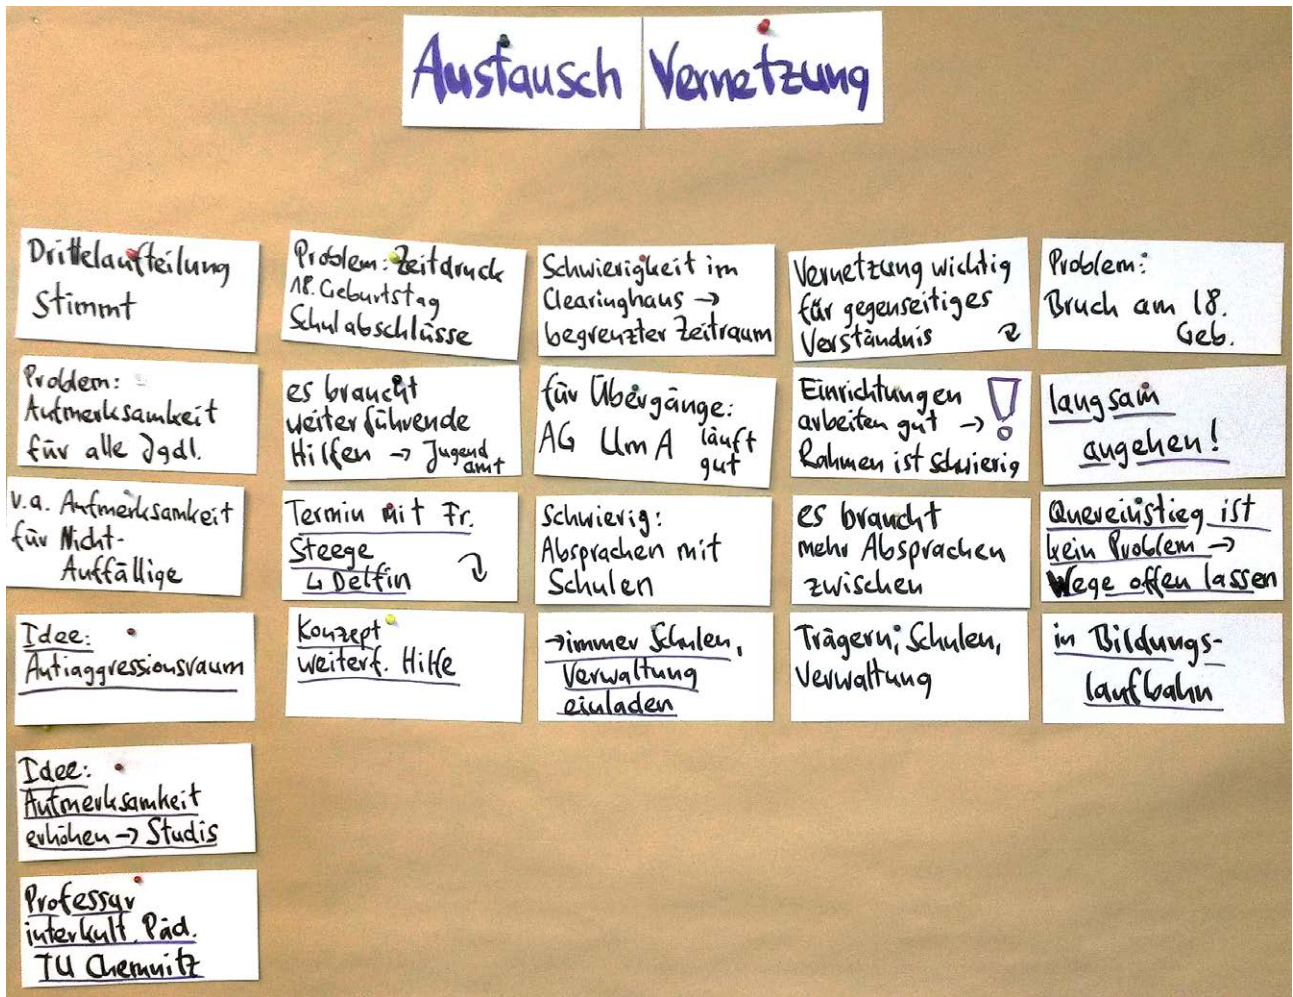 Austausch Vernetzung
Drittelaufteilung
stimmt
Problem:
Aufmerksamkeit
für alle Jgdl.
v.a. Aufmerksamkeit
für Nicht-
Auffällige
Idee:
Antiaggressionsraum
Idee:
Aufmerksamkeit
erhöhen → Studis
Professur
interkult. Päd.
TU Chemnitz
Problem: Zeitdruck
18. Geburtstag
Schulabschlüsse
es braucht
weiterführende
Hilfen → Jugend
amt
Termin mit Fr.
Steege
↳ Delfin
Konzept
weiterf. Hilfe
Schwierigkeit im
Clearinghaus →
begrenzter Zeitraum
für Übergänge:
AG UmA läuft
gut
Schwierig:
Absprachen mit
Schulen
→ immer Schulen,
Verwaltung
einladen
Vernetzung wichtig
für gegenseitiges
Verständnis
Einrichtungen
arbeiten gut → !
Rahmen ist schwierig
es braucht
mehr Absprachen
zwischen
Trägern, Schulen,
Verwaltung
Problem:
Bruch am 18.
Geb.
langsam
angehen!
Quereinstieg ist
kein Problem →
Wege offen lassen
in Bildungs-
laufbahn